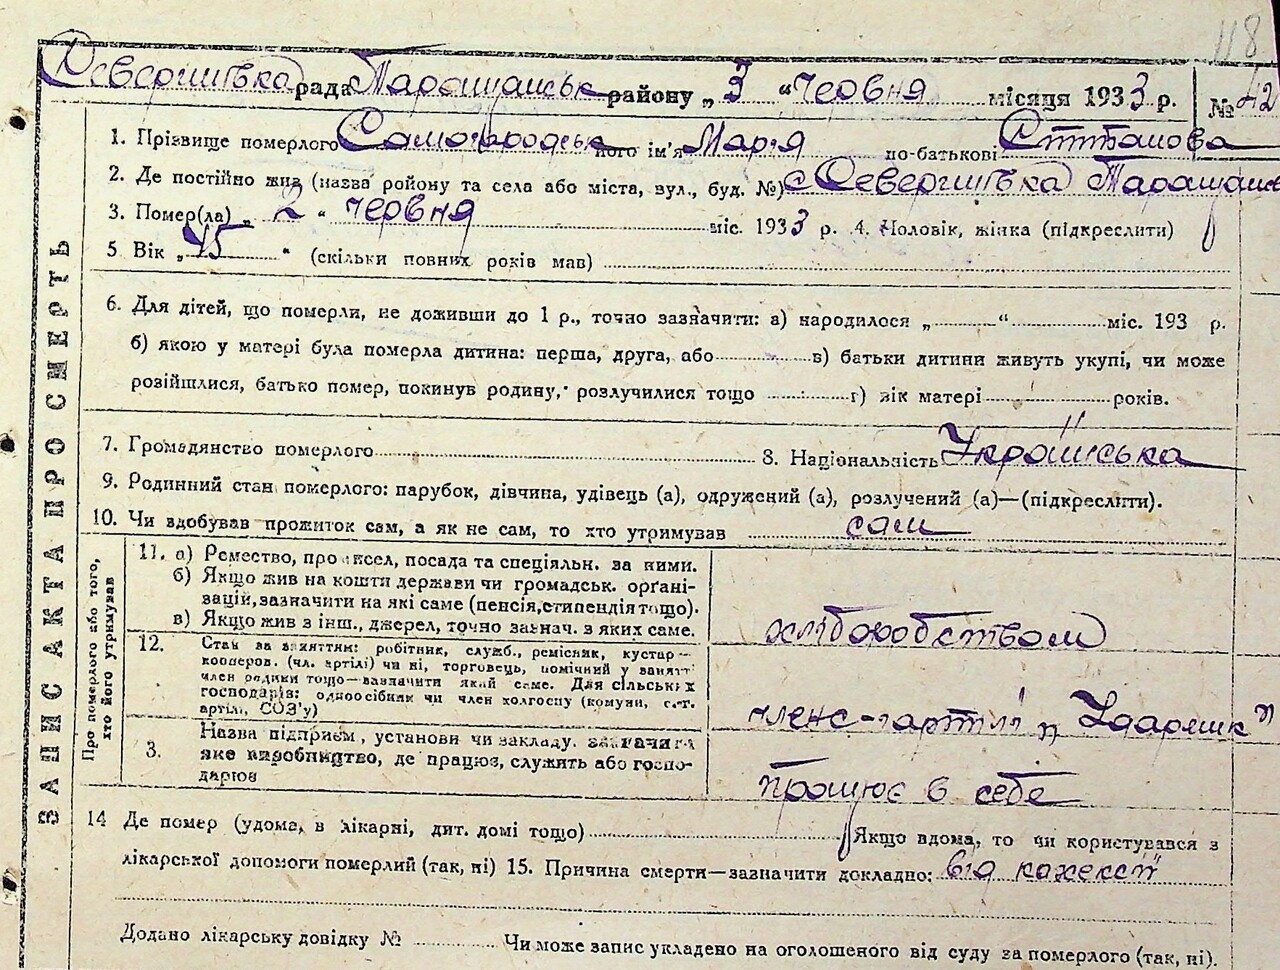 118
Севериновка рада Таращанськ району „ 3 “ червня місяця 1933 р. № 42
1. Прізвище померлого Самогородськ його ім'я Марія по-батькові Степанова
2. Де постійно жив (назва ройону та села або міста, вул., буд. №) с
3. Помер(ла) „ 2 “ червня міс. 1933 р. 4. Чоловік, жінка (підкреслити)
5 Вік „ 45 “ (скільки повних років мав)
6. Для дітей, що померли, не доживши до 1 р., точно зазначити: а) народилося „ “ міс. 193 р.
б) якою у матері була померла дитина: перша, друга, або в) батьки дитини живуть укупі, чи може
розійшлися, батько помер, покинув родину, розлучилися тощо г) вік матері років.
7. Громадянство померлого 8. Національність Українська
9. Родинний стан померлого: парубок, дівчина, удівець (а), одружений (а), розлучений (а)—(підкреслити).
10. Чи здобував прожиток сам, а як не сам, то хто утримував сам
ЗАПИС АКТА ПРО СМЕРТЬ
Про померлого або того,
хто його утримував
11. а) Ремество, професія, посада та спеціяльн. за ними.
б) Якщо жив на кошти держави чи громадськ. орґані-
зацій, зазначити на які саме (пенсія, стипендія тощо).
в) Якщо жив з інш., джерел, точно зазнач. з яких саме.
хліборобством
12. Стан за заняттям: робітник, служб., ремісник, кустар—
кооперов. (чл. артілі) чи ні, торговець, помічний у занятті
член родини тощо—зазначити який саме. Для сільських
господарів: одноосібник чи член колгоспу (комуни, с.-г.
артілі, СОЗ'у)
членс-гартілі „Ударник“
3. Назва підприєм., установи чи закладу. зазначити
яке виробництво, де працює, служить або госпо-
дарює
працює в себе
14 Де помер (удома, в лікарні, дит. домі тощо) Якщо вдома, то чи користувався з
лікарської допомоги померлий (так, ні) 15. Причина смерти—зазначити докладно: від кахексії
Додано лікарську довідку № Чи може запис укладено на оголошеного від суду за померлого (так, ні).